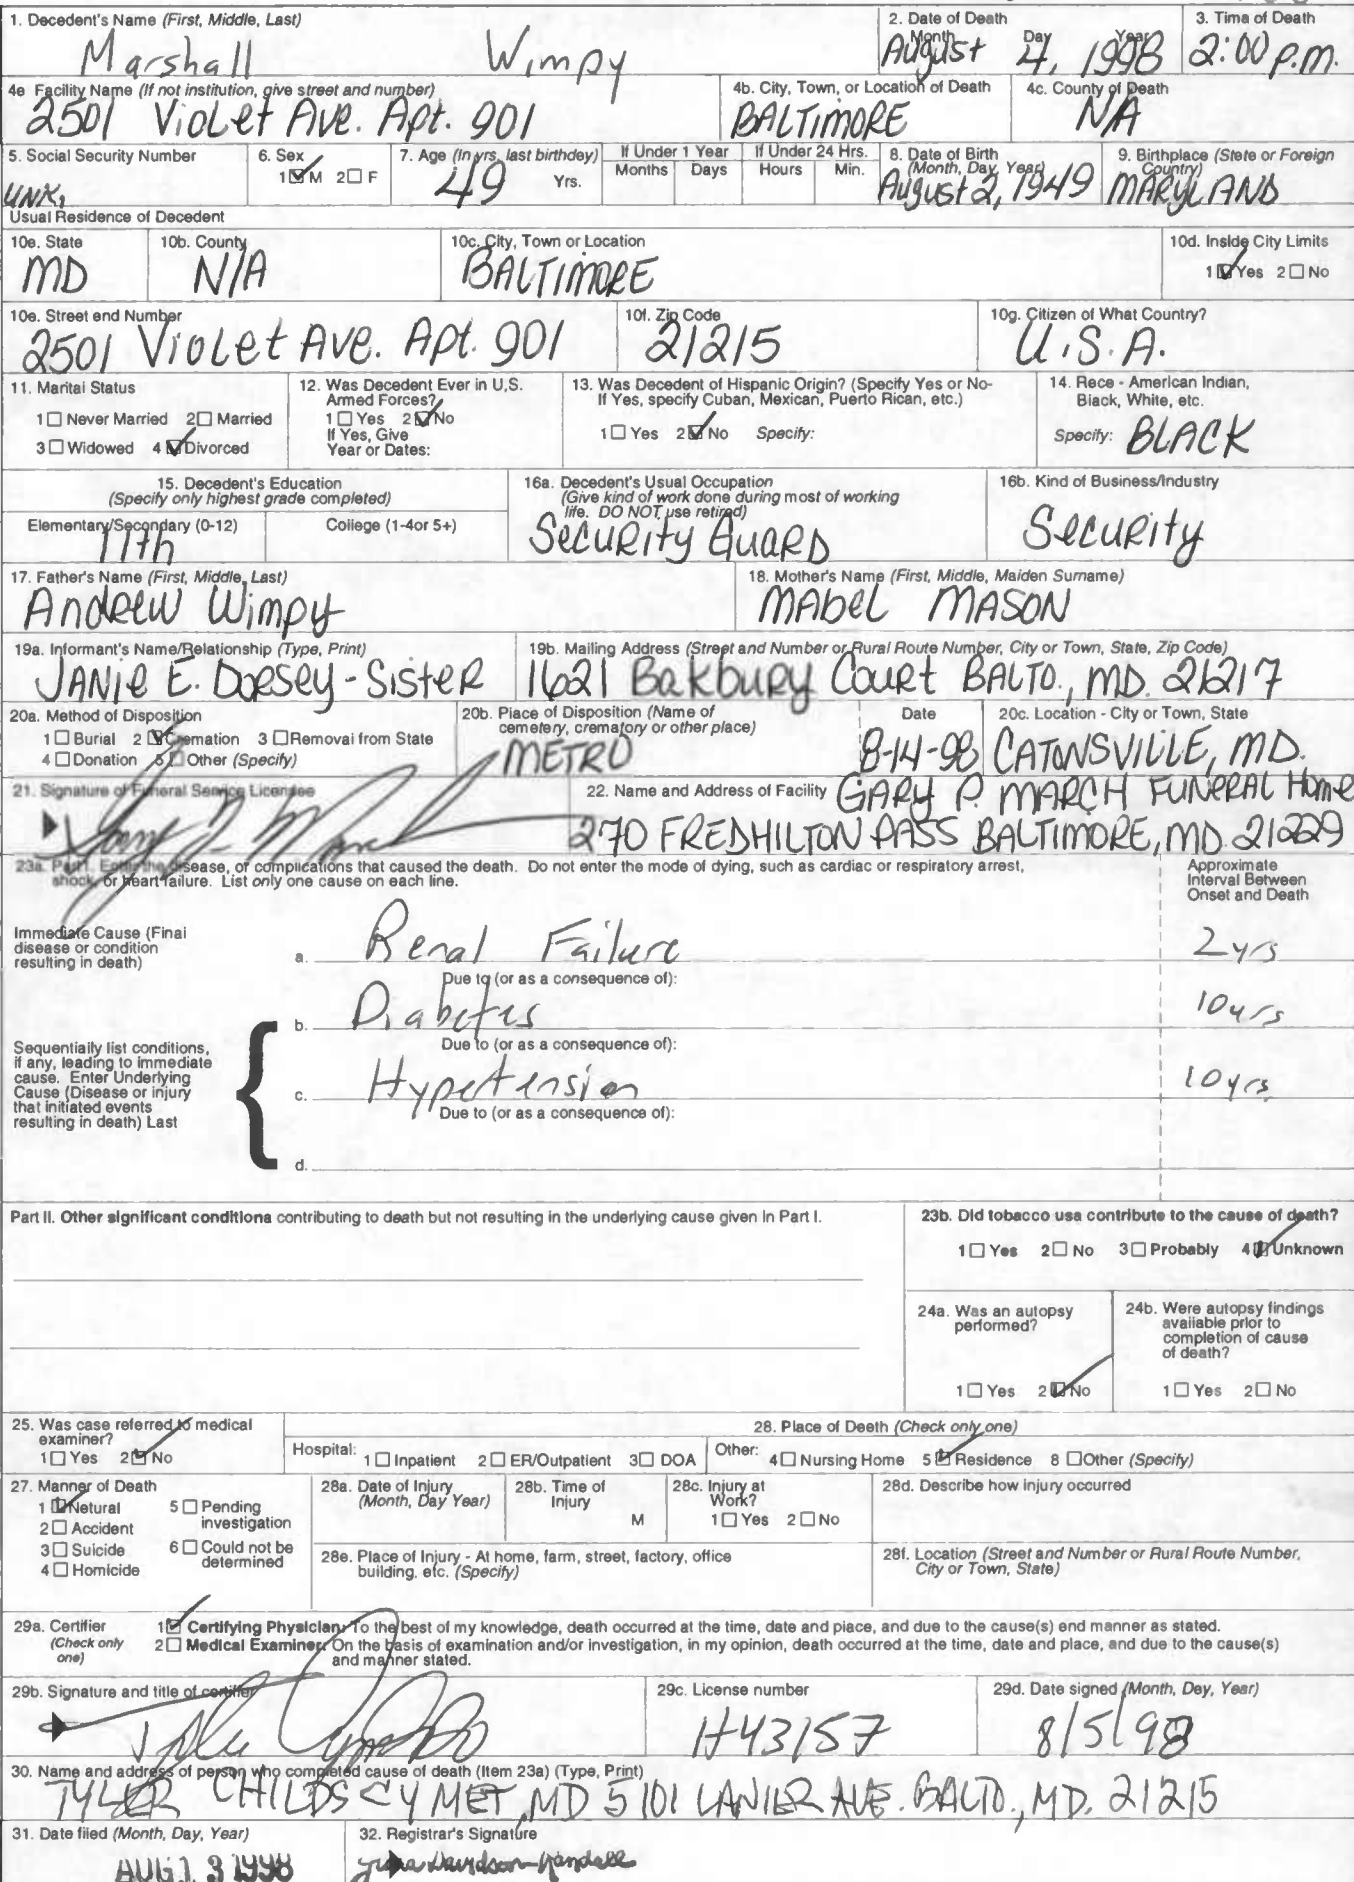 1. Decedent's Name (First, Middle, Last)
Marshall Wimpy
2. Date of Death
Month Day Year
August 4, 1998
3. Tima of Death
2:00 p.m.
4e Facility Name (If not institution, give street and number)
2501 Violet Ave. Apt. 901
4b. City, Town, or Location of Death
BALTIMORE
4c. County of Death
N/A
5. Social Security Number
UNK.
6. Sex
1 ☑ M 2 ☐ F
7. Age (In yrs. last birthday)
49 Yrs.
If Under 1 Year
Months Days
If Under 24 Hrs.
Hours Min.
8. Date of Birth
(Month, Day, Year)
August 2, 1949
9. Birthplace (State or Foreign
Country)
MARYLAND
Usual Residence of Decedent
10e. State
MD
10b. County
N/A
10c. City, Town or Location
BALTIMORE
10d. Inside City Limits
1 ☑ Yes 2 ☐ No
10e. Street end Number
2501 Violet Ave. Apt. 901
10f. Zip Code
21215
10g. Citizen of What Country?
U.S.A.
11. Marital Status
1 ☐ Never Married 2 ☐ Married
3 ☐ Widowed 4 ☑ Divorced
12. Was Decedent Ever in U.S.
Armed Forces?
1 ☐ Yes 2 ☑ No
If Yes, Give
Year or Dates:
13. Was Decedent of Hispanic Origin? (Specify Yes or No-
If Yes, specify Cuban, Mexican, Puerto Rican, etc.)
1 ☐ Yes 2 ☑ No Specify:
14. Rece - American Indian,
Black, White, etc.
Specify: BLACK
15. Decedent's Education
(Specify only highest grade completed)
Elementary/Secondary (0-12) College (1-4or 5+)
11th
16a. Decedent's Usual Occupation
(Give kind of work done during most of working
life. DO NOT use retired)
Security Guard
16b. Kind of Business/Industry
Security
17. Father's Name (First, Middle, Last)
Andrew Wimpy
18. Mother's Name (First, Middle, Maiden Surname)
MABEL MASON
19a. Informant's Name/Relationship (Type, Print)
JANIE E. DORSEY - SISTER
19b. Mailing Address (Street and Number or Rural Route Number, City or Town, State, Zip Code)
1621 Bakbury Court BALTO., MD. 21217
20a. Method of Disposition
1 ☐ Burial 2 ☑ Cremation 3 ☐ Removal from State
4 ☐ Donation 5 ☐ Other (Specify)
20b. Place of Disposition (Name of
cemetery, crematory or other place)
METRO
Date
8-14-98
20c. Location - City or Town, State
CATONSVILLE, MD.
21. Signature of Funeral Service Licensee
22. Name and Address of Facility GARY P. MARCH FUNERAL Home
270 FREDHILTON PASS BALTIMORE, MD. 21229
23a. Part I. Enter the disease, or complications that caused the death. Do not enter the mode of dying, such as cardiac or respiratory arrest,
shock, or heart failure. List only one cause on each line.
Approximate
Interval Between
Onset and Death
Immediate Cause (Final
disease or condition
resulting in death)
a. Renal Failure 2 yrs
Due to (or as a consequence of):
b. Diabetes 10 yrs
Due to (or as a consequence of):
Sequentially list conditions,
if any, leading to immediate
cause. Enter Underlying
Cause (Disease or injury
that initiated events
resulting in death) Last
c. Hypertension 10 yrs
Due to (or as a consequence of):
d.
Part II. Other significant conditiona contributing to death but not resulting in the underlying cause given in Part I.
23b. Did tobacco usa contribute to the cause of death?
1 ☐ Yes 2 ☐ No 3 ☐ Probably 4 ☑ Unknown
24a. Was an autopsy
performed?
1 ☐ Yes 2 ☑ No
24b. Were autopsy findings
available prior to
completion of cause
of death?
1 ☐ Yes 2 ☐ No
25. Was case referred to medical
examiner?
1 ☐ Yes 2 ☑ No
28. Place of Death (Check only one)
Hospital: 1 ☐ Inpatient 2 ☐ ER/Outpatient 3 ☐ DOA Other: 4 ☐ Nursing Home 5 ☑ Residence 8 ☐ Other (Specify)
27. Manner of Death
1 ☑ Netural 5 ☐ Pending
investigation
2 ☐ Accident
3 ☐ Suicide 6 ☐ Could not be
determined
4 ☐ Homicide
28a. Date of Injury
(Month, Day Year)
28b. Time of
Injury
M
28c. Injury at
Work?
1 ☐ Yes 2 ☐ No
28d. Describe how injury occurred
28e. Place of Injury - At home, farm, street, factory, office
building, etc. (Specify)
28f. Location (Street and Number or Rural Route Number,
City or Town, State)
29a. Certifier
(Check only
one)
1 ☑ Certifying Physician: To the best of my knowledge, death occurred at the time, date and place, and due to the cause(s) end manner as stated.
2 ☐ Medical Examiner: On the basis of examination and/or investigation, in my opinion, death occurred at the time, date and place, and due to the cause(s)
and manner stated.
29b. Signature and title of certifier
29c. License number
H43157
29d. Date signed (Month, Day, Year)
8/5/98
30. Name and address of person who completed cause of death (Item 23a) (Type, Print)
TYLER CHILDS CYMET, MD 5101 LANIER AVE. BALTO., MD. 21215
31. Date filed (Month, Day, Year)
AUG 13 1998
32. Registrar's Signature